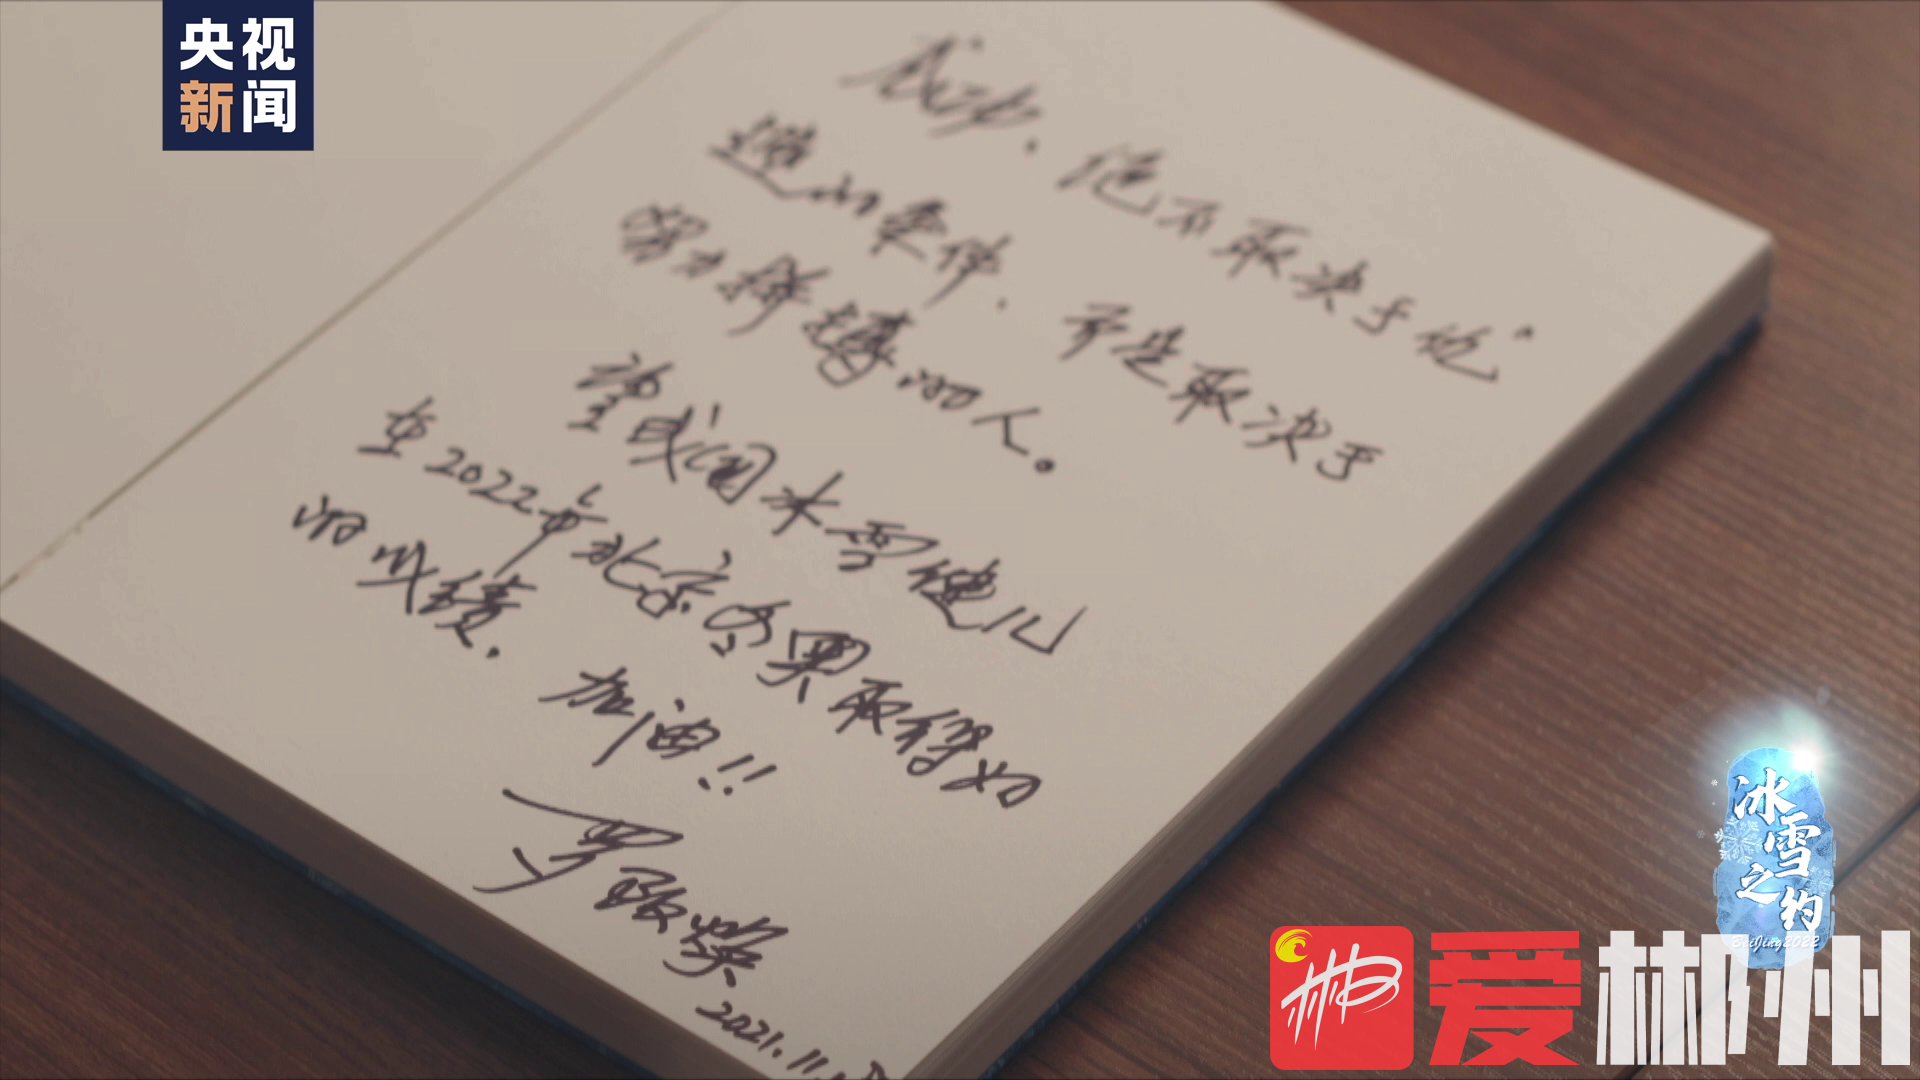 央视
新闻
成功,绝不取决于他
造的条件,而是取决于
努力拼搏的人。
望我国冰雪健儿
在2022年北京冬奥取得好
的成绩.
加油!!
罗致焕
2021.11.
冰雪之约
BeiJing2022
爱郴州